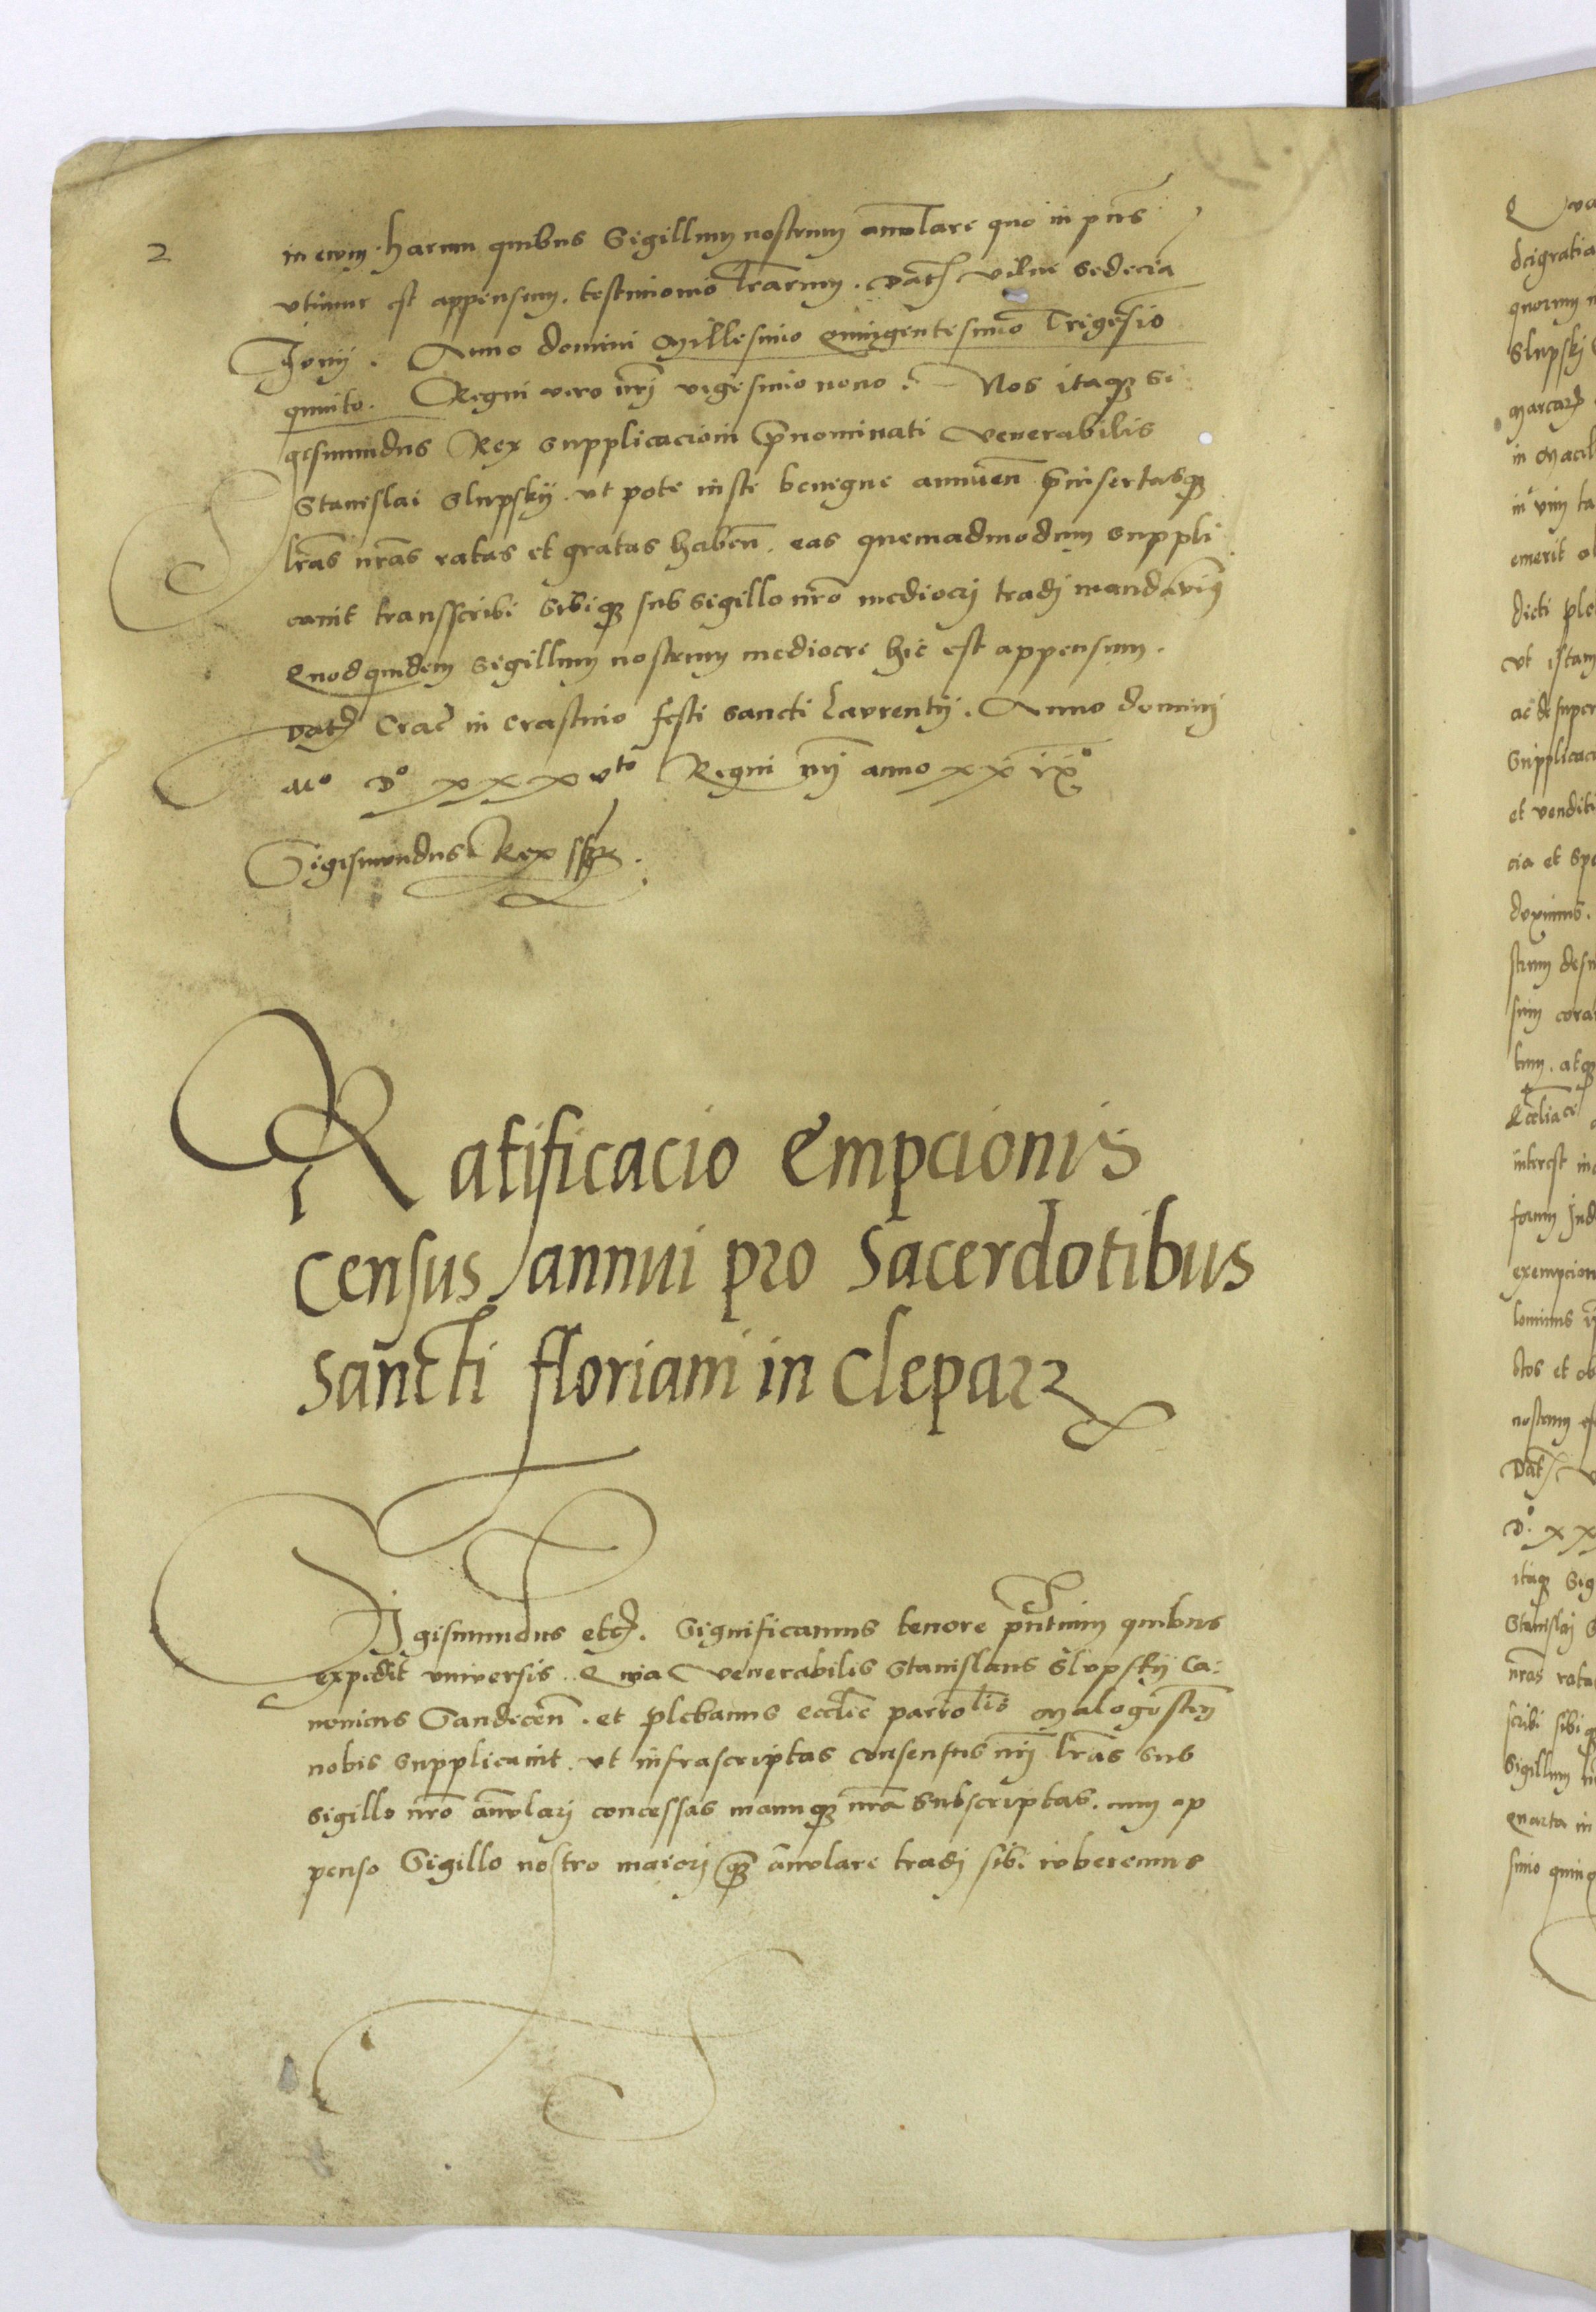 2
in evum. harum quibus Sigillum nostrum anulare quo in pñs
utimur est appensum. testimonio lrarum. Dat Vilne sedecia
Junij. Anno domini Millesimo Quingentesimo Trigesio
quinto. Regni vero nrj vigesimo nono. Nos itaq Si
gismundus Rex supplicacioni prenominati Venerabilis
Stanislai Slupskij. ut pote iuste benigne annuen preinsertasq
lras nras ratas et gratas haben. eas quemadmodum suppli
cavit transscribi sibiq sub sigillo nro mediocrj tradj mandavim9
Quodquidem sigillum nostrum mediocre hic est appensum.
Dat Crac in crastino festi sancti Laurentij. Anno dominj
Mo Do xxxvto Regni nrj anno xxixo
Sigismundus Rex sspt.
Ratificacio Empcionis
census annui pro Sacerdotibus
Sancti floriani in Cleparz
Sigismundus etc. Significamus tenore pntium quibus
expedit universis. Quia Venerabilis Stanislaus Slupskij Ca:
nonicus Sandecen. et plebanus ecclie parrolis Malogosten
nobis supplicavit. ut infrascriptas consensus nrj lras sub
sigillo nro anularj concessas manuq nra subscriptas. cum ap
penso Sigillo nostro maiorj quam anulare tradj sibi iuberemus
Qua
dei gratia
quorum
Slupskj
marcar
in
emerit
dicti ple
ut istam
ac desuper
Supplicaci
et venditi
cia et spe
duximus.
strum
sum cora
tum. atq
interest
forum Jud
exempcion
lominus
ctos et ob
nostrum es
Dat V
Do. xx
itaq Sig
Stanislaj S
nras rata
scribi sibiq
Sigillum
quarta in
simo quin